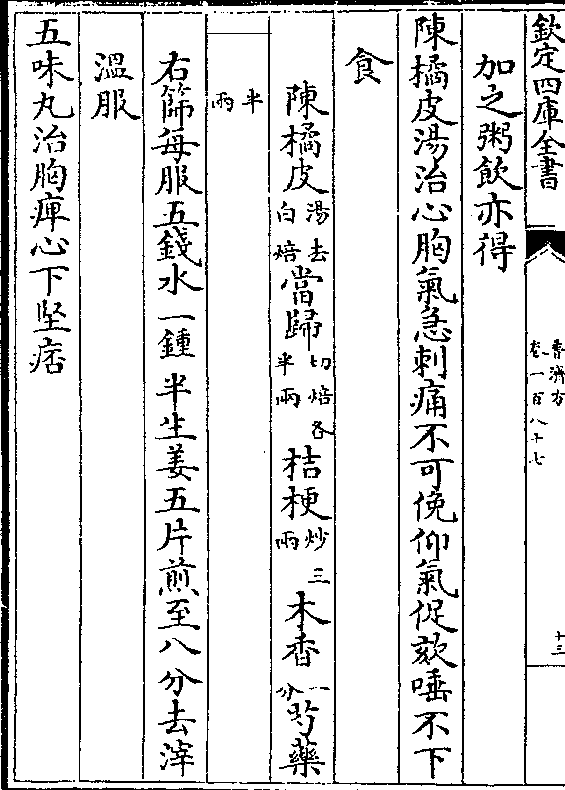 欽定四庫全書
普濟方
卷一百八十七
十三
加之粥飲亦得
陳橘皮湯治心胸氣急刺痛不可俛仰氣促欬唾不下
食
陳橘皮湯去白焙當歸切焙各半兩桔梗炒三兩木香一分芍藥
半兩
右篩每服五錢水一鍾半生姜五片煎至八分去滓
溫服
五味丸治胸痺心下堅痞